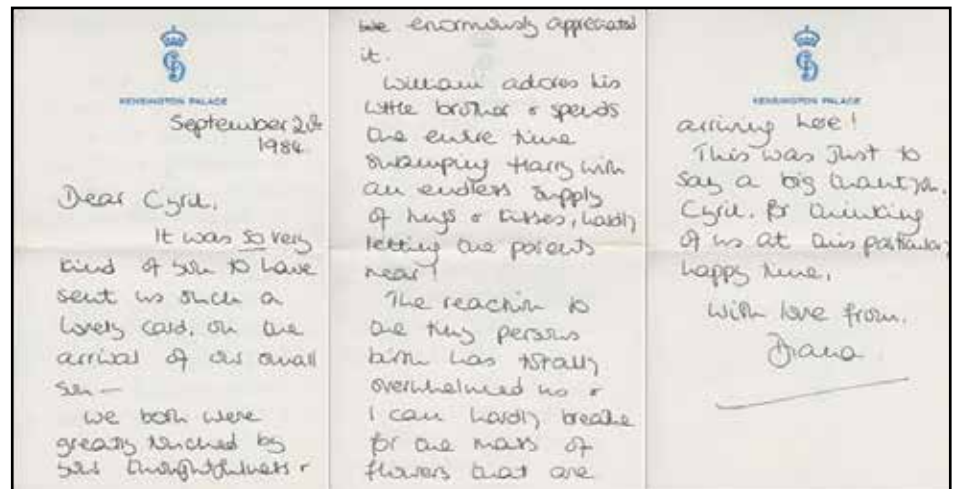 KENSINGTON PALACE
September 20th
1984.
Dear Cyril,
It was so very
kind of you to have
sent us such a
lovely card, on the
arrival of our small
son —
We both were
greatly touched by
your thoughtfulness &
we enormously appreciated
it.
William adores his
little brother & spends
the entire time
swamping Harry with
an endless supply
of hugs & kisses, hardly
letting the parents
near!
The reaction to
one tiny persons
birth has totally
overwhelmed us &
I can hardly breathe
for the mass of
flowers that are
KENSINGTON PALACE
arriving here!
This was just to
say a big thankyou,
Cyril, for thinking
of us at this particularly
happy time,
With love from,
Diana